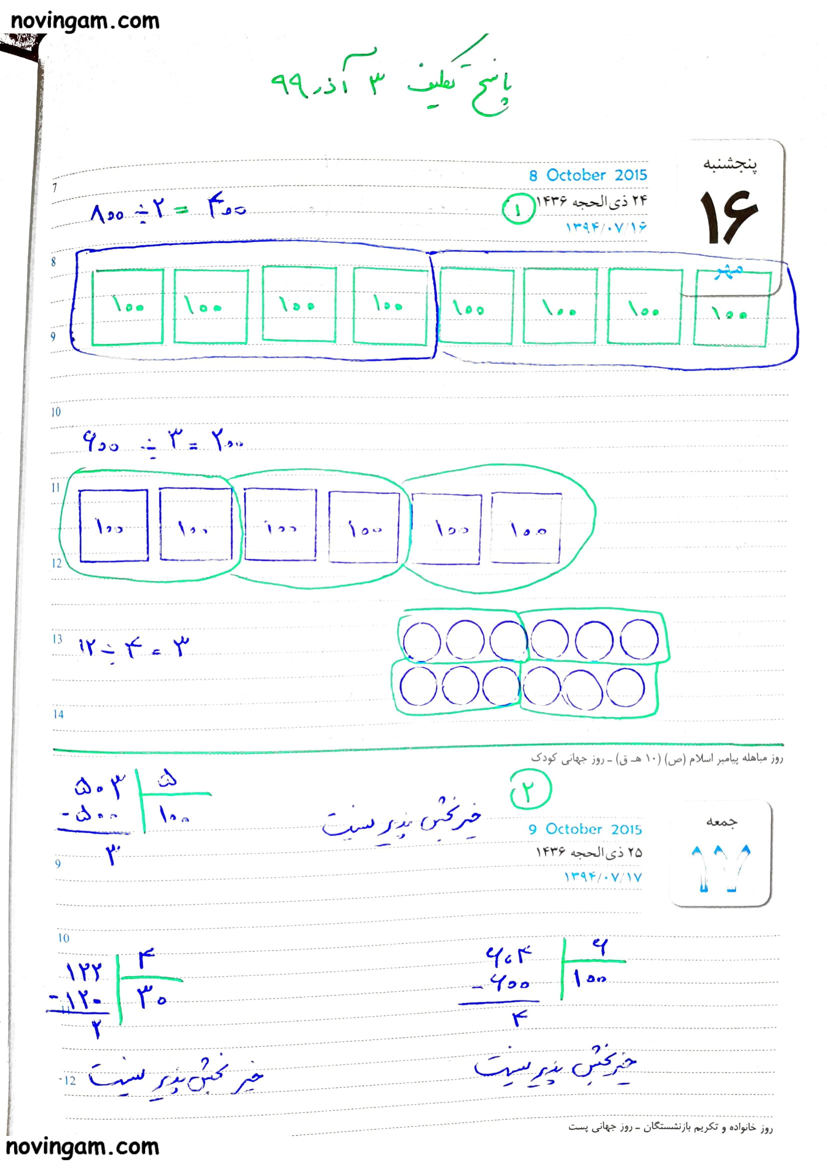 novingam.com
پاسخ تکلیف ۳ آذر ۹۹
پنجشنبه
۱۶
مهر
8 October 2015
۲۴ ذی الحجه ۱۴۳۶
۱۳۹۴/۰۷/۱۶
۱
7
۸۰۰ ÷ ۲ = ۴۰۰
8
۱۰۰ ۱۰۰ ۱۰۰ ۱۰۰ ۱۰۰ ۱۰۰ ۱۰۰ ۱۰۰
9
10
۶۰۰ ÷ ۳ = ۲۰۰
11
۱۰۰ ۱۰۰ ۱۰۰ ۱۰۰ ۱۰۰ ۱۰۰
12
13
۱۲ ÷ ۴ = ۳
14
روز مباهله پیامبر اسلام (ص) (۱۰ هـ ق) ـ روز جهانی کودک
۲
جمعه
۱۷
9 October 2015
۲۵ ذی الحجه ۱۴۳۶
۱۳۹۴/۰۷/۱۷
۵۰۳ | ۵
-۵۰۰ | ۱۰۰
۳
خیر بخش پذیر نیست
9
10
۶۰۴ | ۶
-۶۰۰ | ۱۰۰
۴
خیر بخش پذیر نیست
۱۲۲ | ۴
-۱۲۰ | ۳۰
۲
خیر بخش پذیر نیست
12
روز خانواده و تکریم بازنشستگان ـ روز جهانی پست
novingam.com